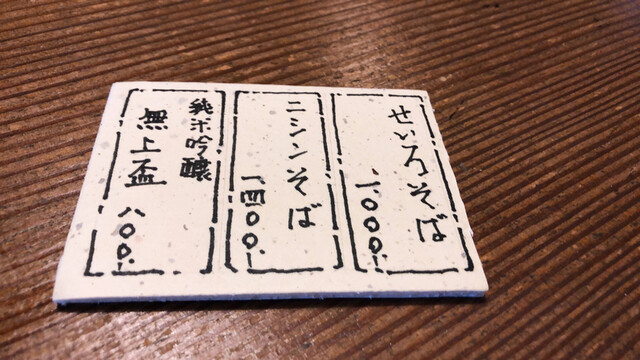 せいろそば
一〇〇〇.
ニシンそば
一四〇〇.
純米吟醸
無上盃
八〇〇.